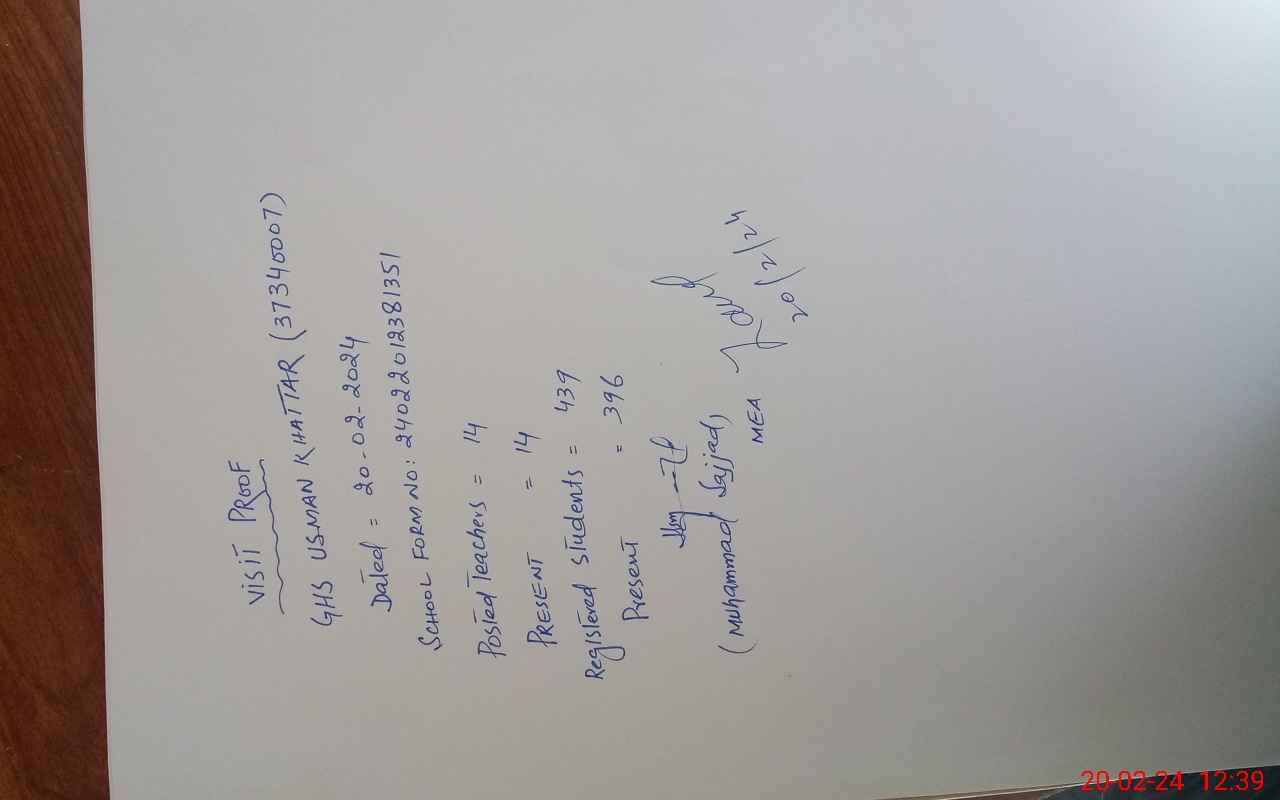 VISIT PROOF
GHS USMAN KHATTAR (37340007)
Dated = 20-02-2024
SCHOOL FORM NO: 2402201238 1351
Posted Teachers = 14
PRESENT = 14
Registered students = 439
Present = 396
(Muhammad Sajjad)
MEA
20/2/24
20-02-24 12:39